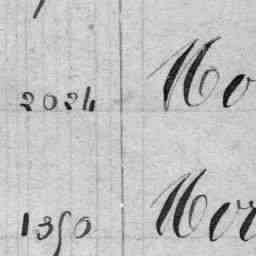 2024 Mo
1350 Mor